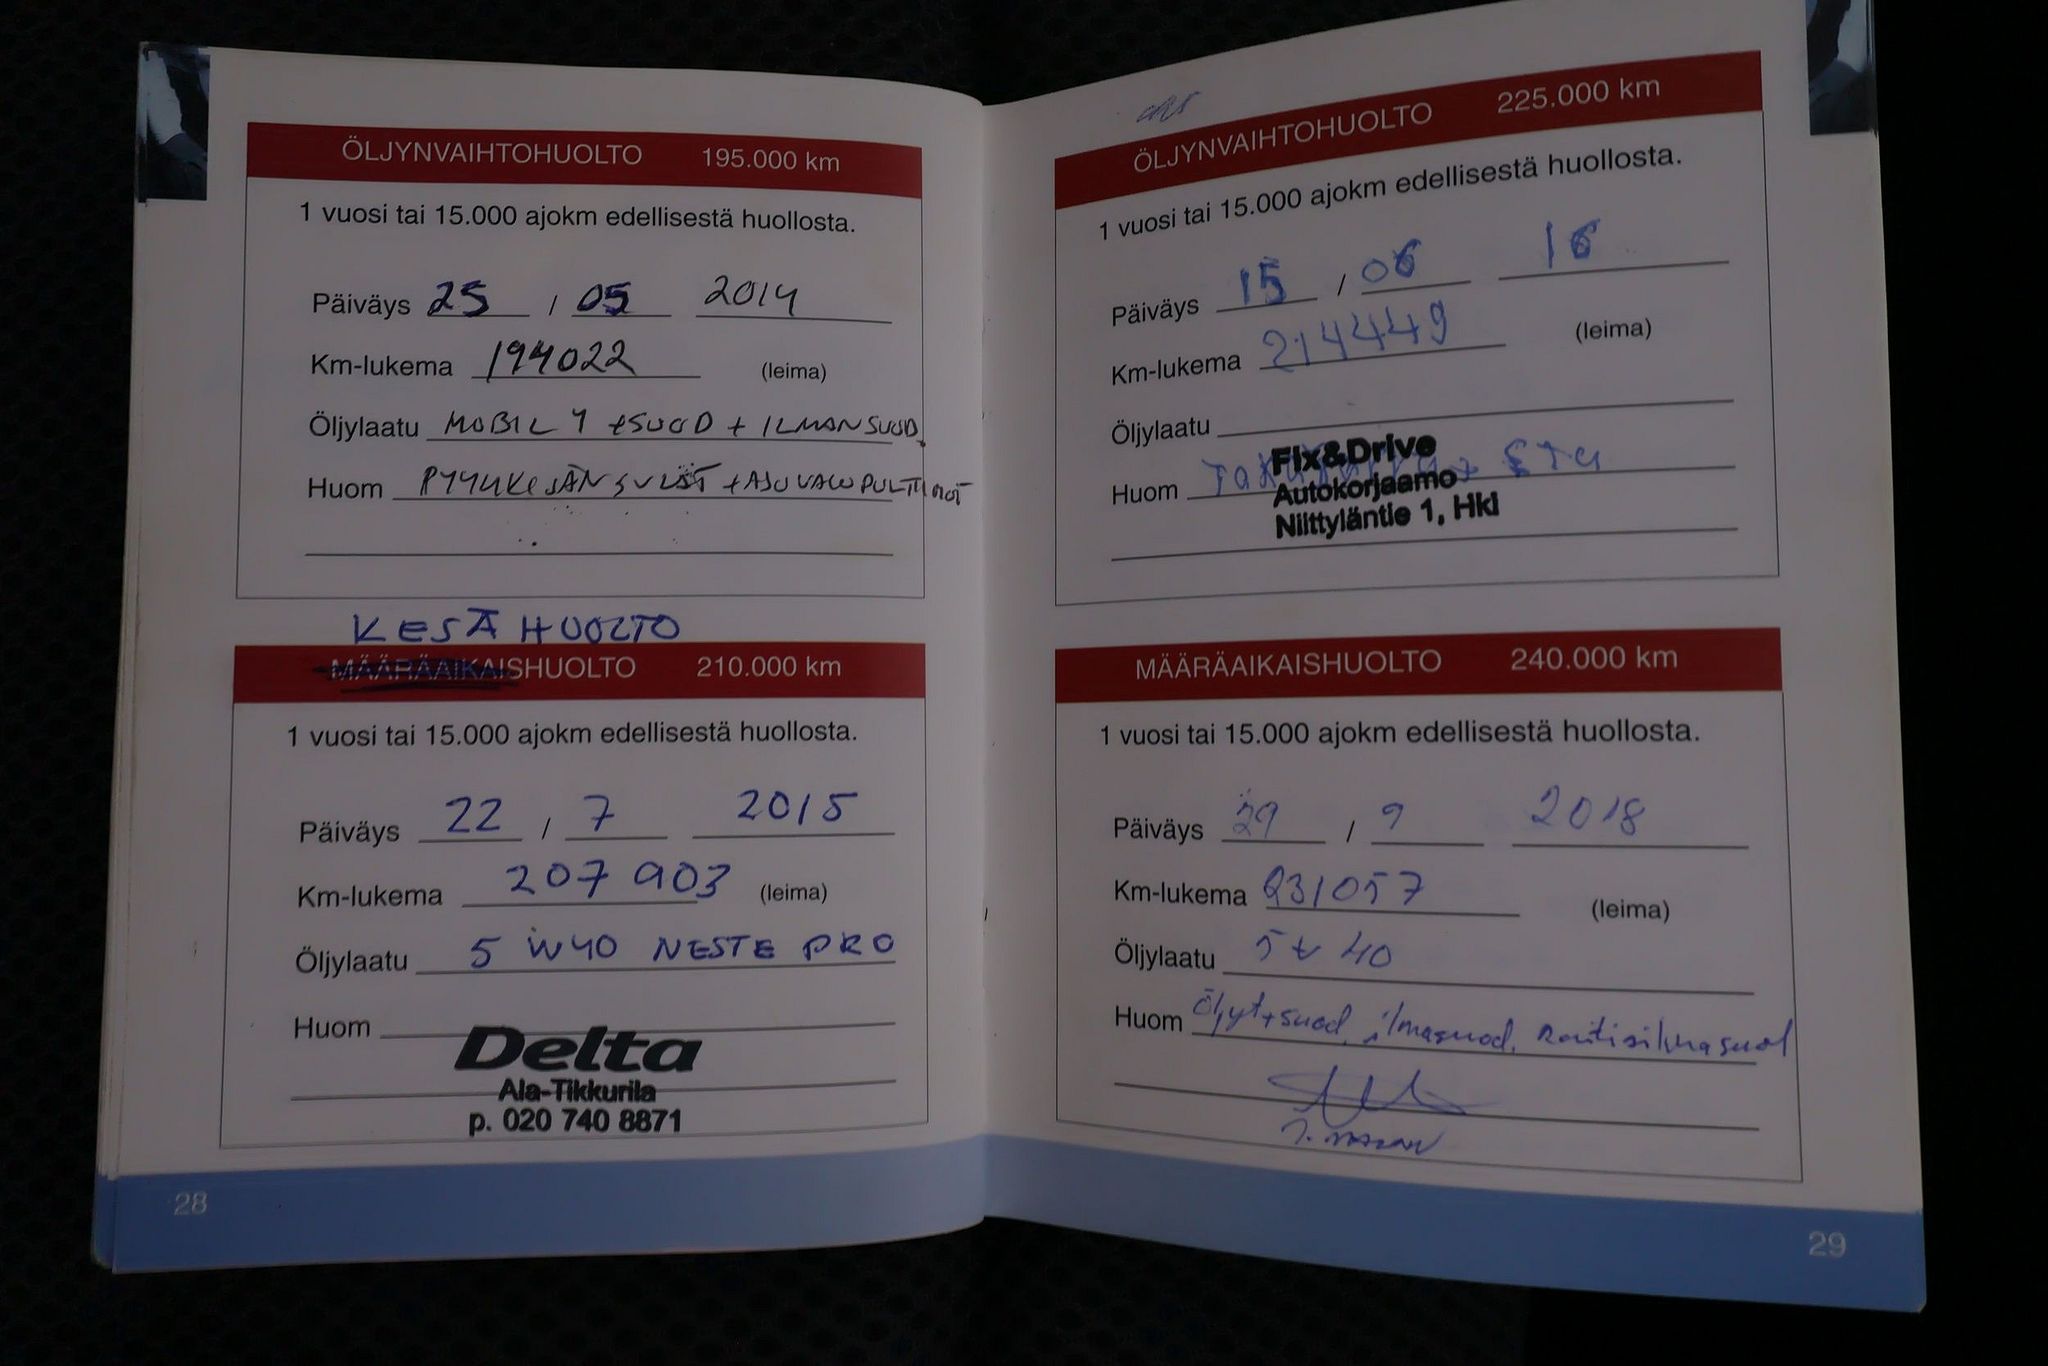 ÖLJYNVAIHTOHUOLTO 195.000 km
1 vuosi tai 15.000 ajokm edellisestä huollosta.
Päiväys 25 / 05 2014
Km-lukema 194022 (leima)
Öljylaatu MOBIL 1 +SUOD + ILMANSUOD.
Huom PYYHKIJÄN SULAT +
KESÄHUOLTO
MÄÄRÄAIKAISHUOLTO 210.000 km
1 vuosi tai 15.000 ajokm edellisestä huollosta.
Päiväys 22 / 7 2015
Km-lukema 207 903 (leima)
Öljylaatu 5 W40 NESTE PRO
Huom
Delta
Ala-Tikkurila
p. 020 740 8871
28
ÖLJYNVAIHTOHUOLTO 225.000 km
1 vuosi tai 15.000 ajokm edellisestä huollosta.
Päiväys 15 / 06 16
Km-lukema 214449 (leima)
Öljylaatu
Huom
Fix&Drive
Autokorjaamo
Niittyläntie 1, Hki
MÄÄRÄAIKAISHUOLTO 240.000 km
1 vuosi tai 15.000 ajokm edellisestä huollosta.
Päiväys 29 / 9 2018
Km-lukema 231057 (leima)
Öljylaatu 5 40
Huom Öljyt+suod, ilmasuod, raitisilmasuod
29